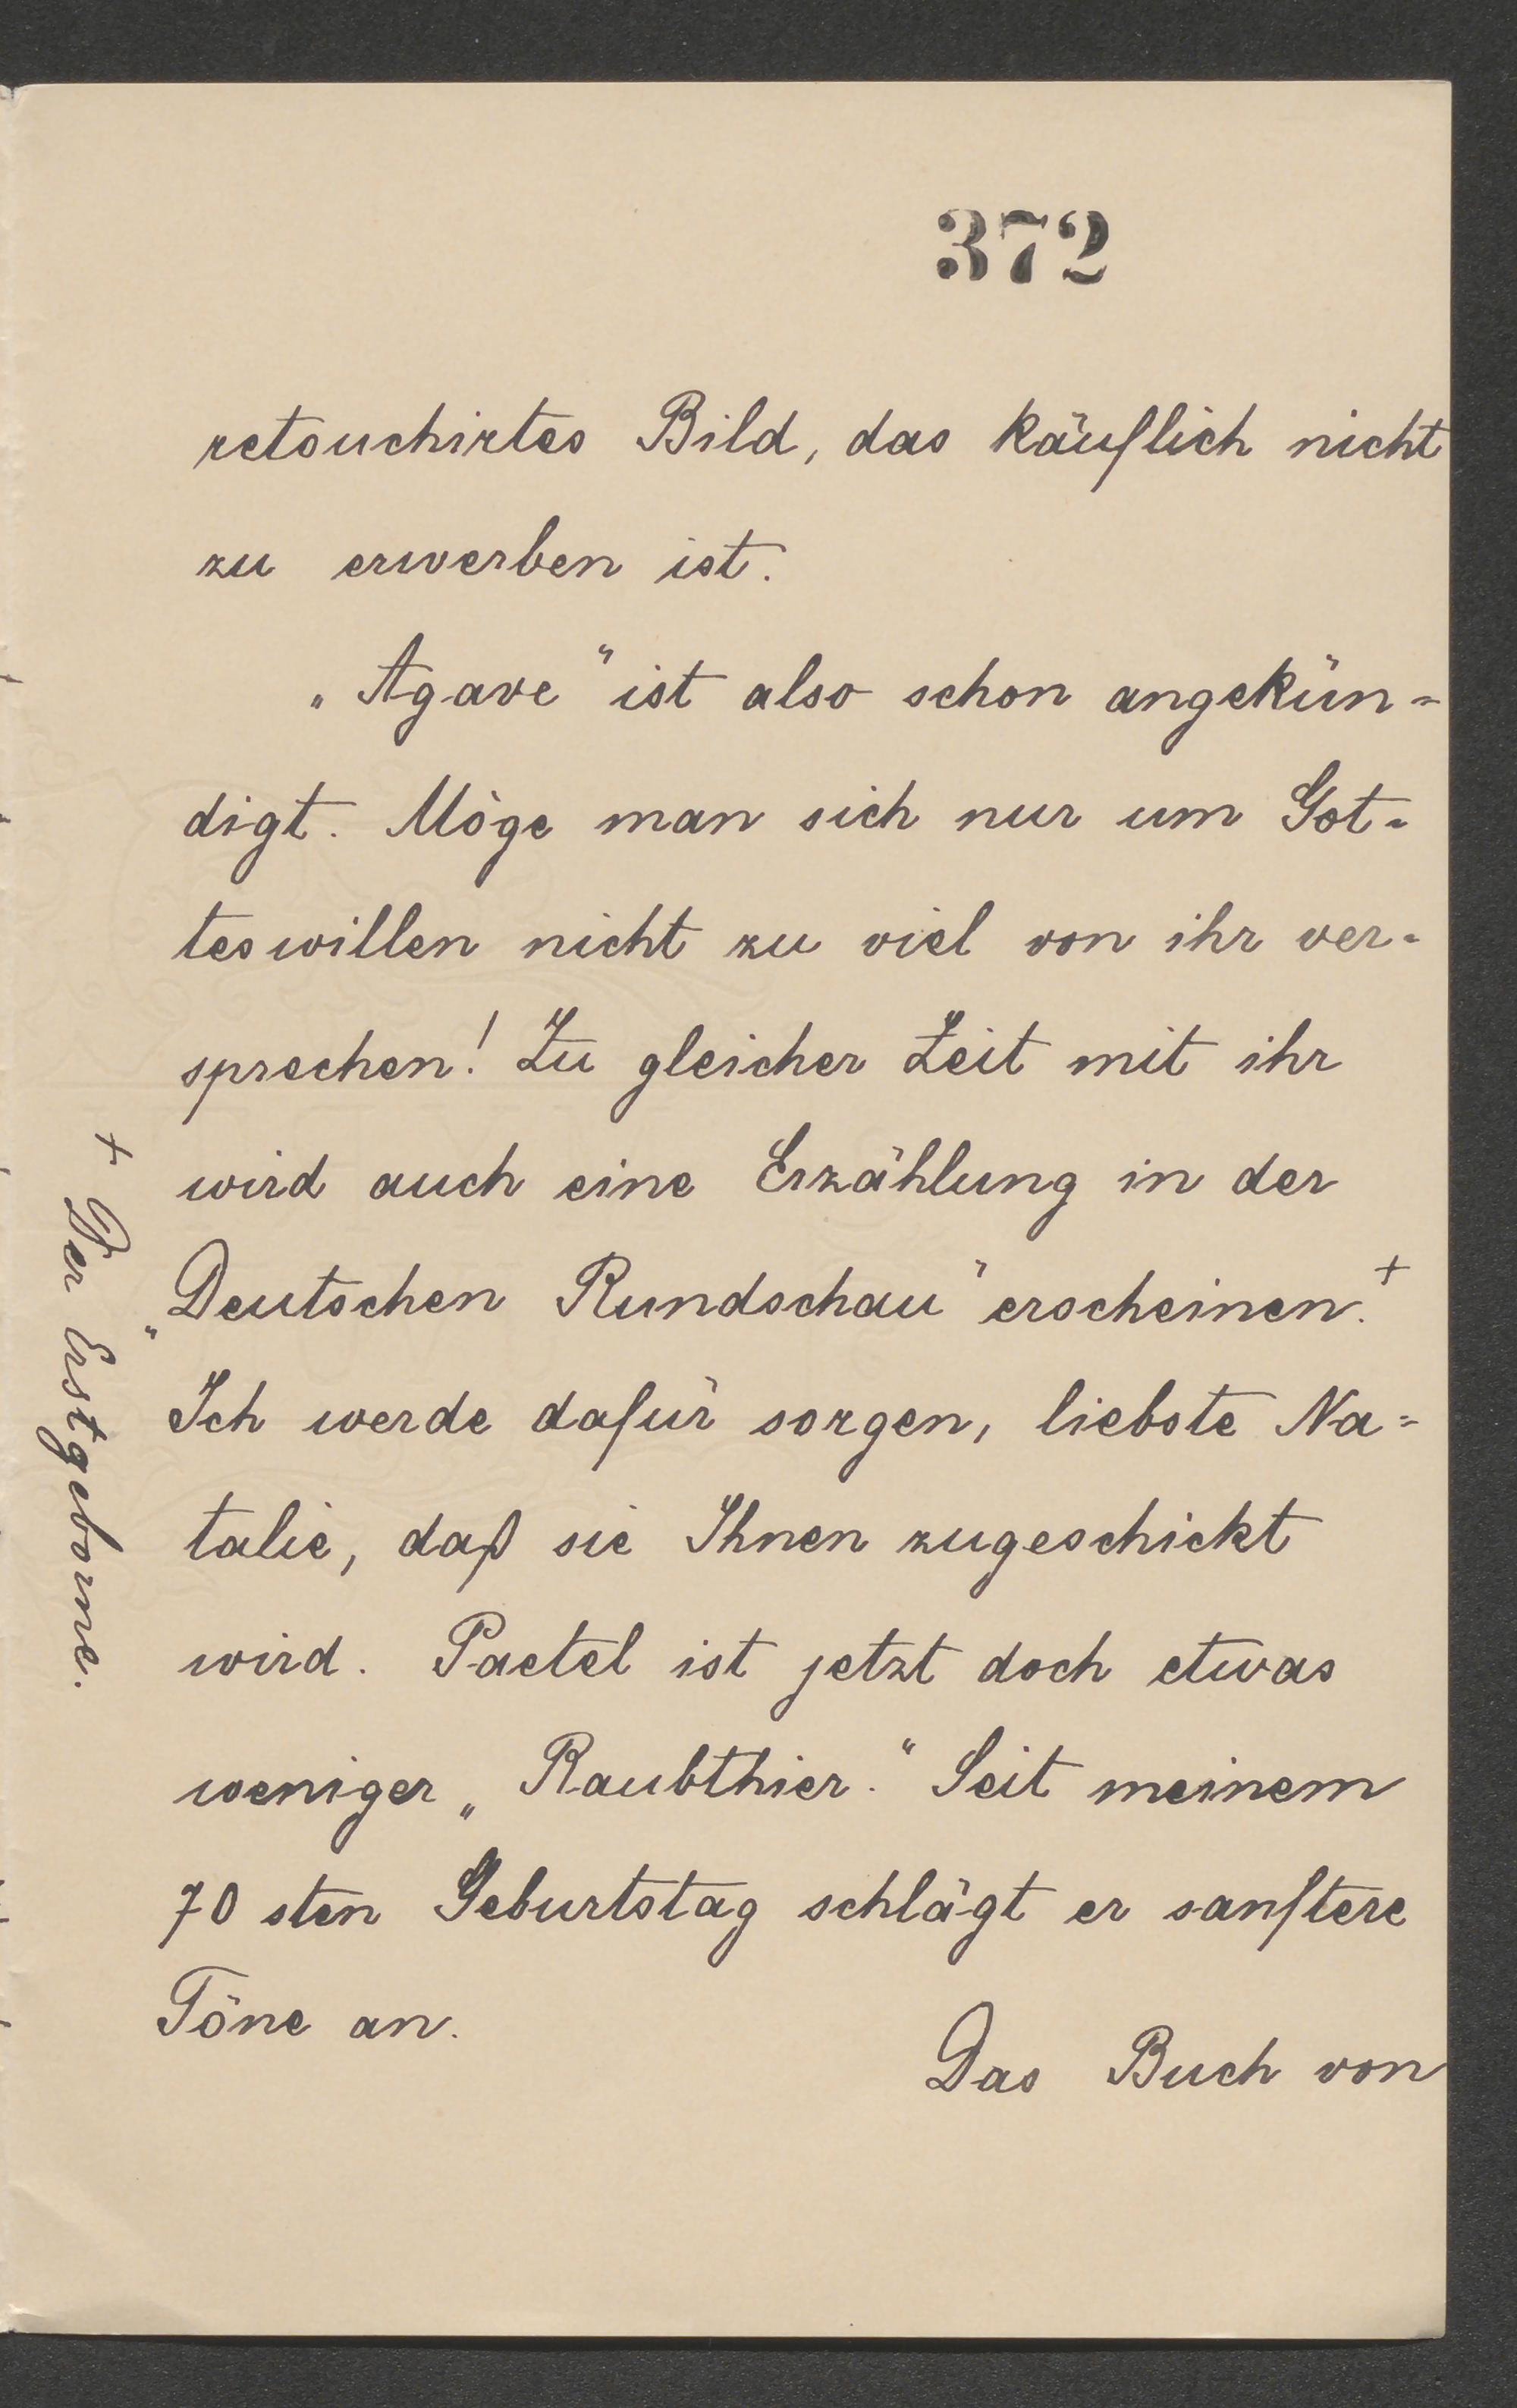 372
retouchirtes Bild, das käuflich nicht
zu erwerben ist.
„Agave“ ist also schon angekün=
digt. Möge man sich nur um Got=
teswillen nicht zu viel von ihr ver=
sprechen! Zu gleicher Zeit mit ihr
wird auch eine Erzählung in der
„Deutschen Rundschau“ erscheinen.+
Ich werde dafür sorgen, liebste Na=
talie, daß sie Ihnen zugeschickt
wird. Paetel ist jetzt doch etwas
weniger „Raubthier.“ Seit meinem
70 sten Geburtstag schlägt er sanftere
Töne an.
Das Buch von
+ Der Erstgeborne.